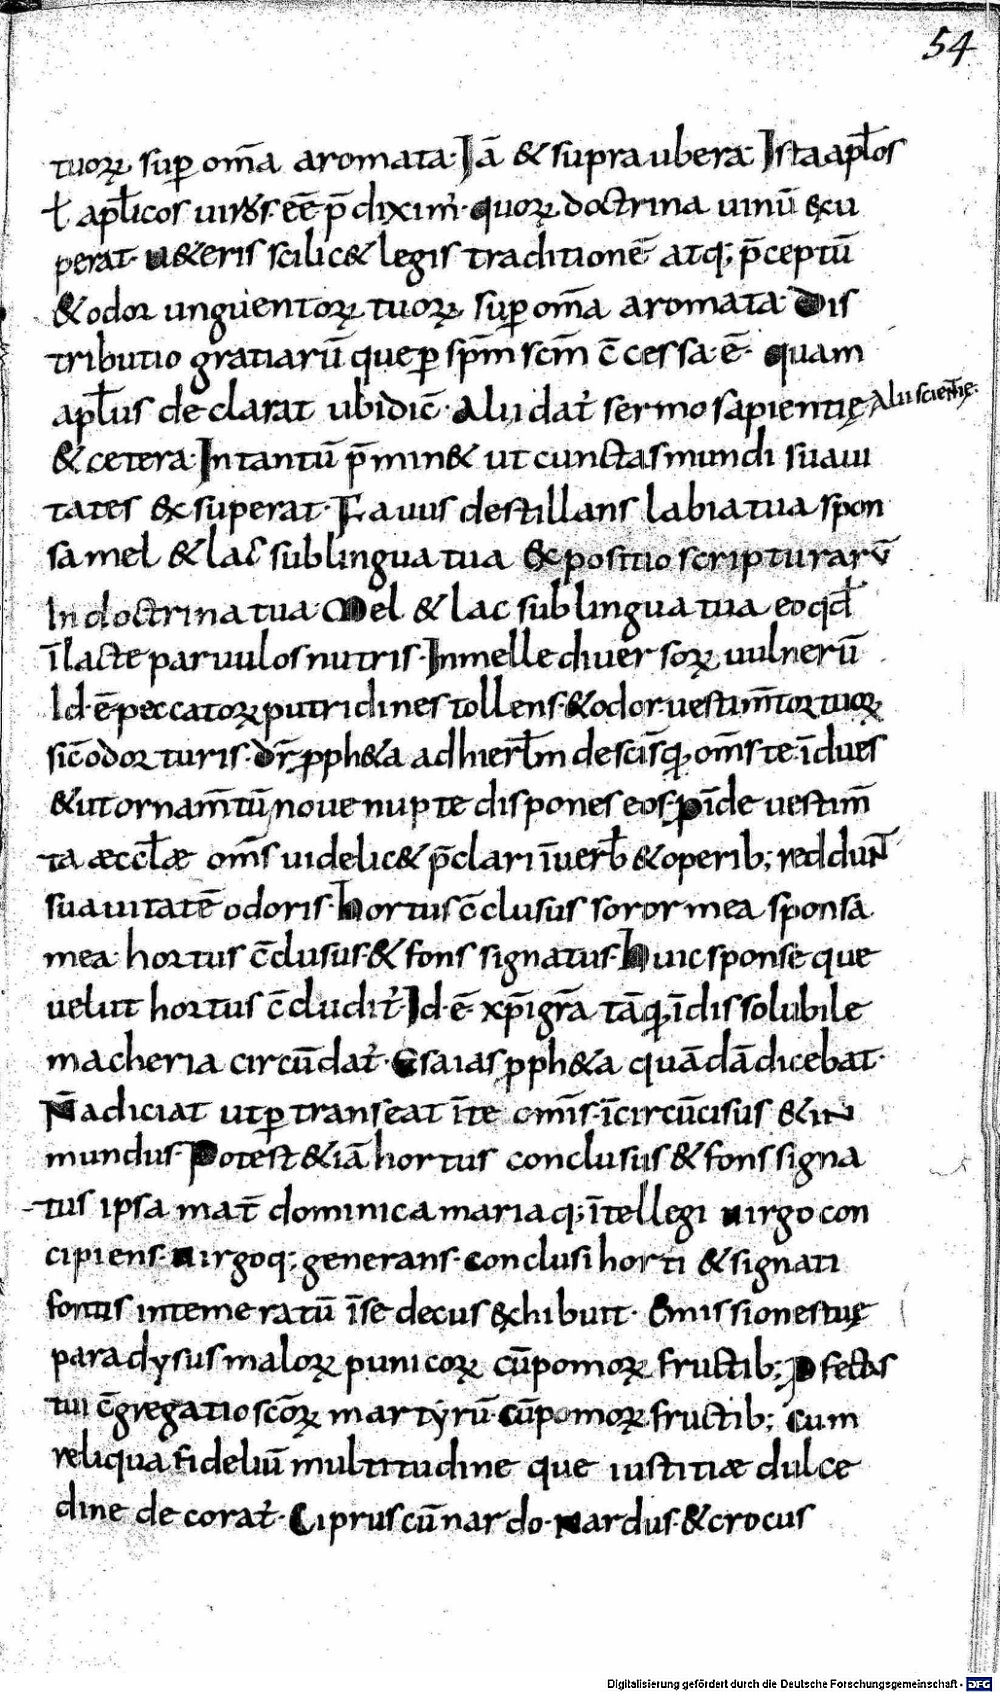 54
tuoꝝ suꝑ om̄a aromata· Iā & supra ubera· Ista apl̄os
ł apl̄icos uiros· eē p̄diximꝰ· quoꝝ doctrina uinū excu
perat· u&eris scilic& legis traditionē atq; p̄ceptū
& odor unguentoꝝ tuoꝝ suꝑ om̄a aromata· Dis
tributio gratiarū que ꝑ sp̄m sc̄m c̄cessa· ē· quam
apl̄us declarat ubi dic̄· Alii dat᷑ sermo sapientię Alii scientię·
& cetera· In tantū p̄min& ut cunctas mundi suaui
tates exsuperat· Fauus destillans labia tua spon
sa mel & lac sub lingua tua expositio scripturarū
In doctrina tua· Mel & lac sub lingua tua eo qd̄
ī lacte paruulos nutris· In melle diuersoꝝ uulnerū
Id· ē· peccatoꝝ putridines tollens· & odor uestim̄toꝝ tuoꝝ
sic̄ odor turis· Dr̄ ꝓph&a ad hierl̄m de scīs q̄ om̄s te īdues
& ut ornam̄tū noue nupte dispones eos· Pīde uestim̄
ta æccl̄æ om̄s uidelic& p̄clari ī uerb̄ & operib; reddunt
suauitatē odoris· hortus c̄clusus soror mea sponsa
mea· hortus c̄clusus· & fons signatus· huic sponse que
uelut hortus c̄cludit᷑· Id· ē· xp̄i gr̄a tāq̄ īdissolubile
macheria circūdat᷑· Esaias ꝓph&a quādā dicebat·
N̄ adiciat ut ꝑtranseat īte om̄is· īcircūcisus & in
mundus· Potest & iā hortus conclusus & fons signa
tus ipsa mat̄ dominica maria q; ītellegi uirgo con
cipiens· uirgoq; generans· Conclusi horti & signati
fontis intemeratū īse decus exhibuit· Emissiones tuę
paradysus maloꝝ punicoꝝ cū pomoꝝ fructib; Ꝓfectus
tui c̄gregatio sc̄oꝝ martyrū· Cū pomoꝝ fructib; Cum
reliqua fideliū multitudine que iustitiæ dulce
dine decorat᷑· Ciprus cū nardo· Nardus· & crocus
Digitalisierung gefördert durch die Deutsche Forschungsgemeinschaft - DFG